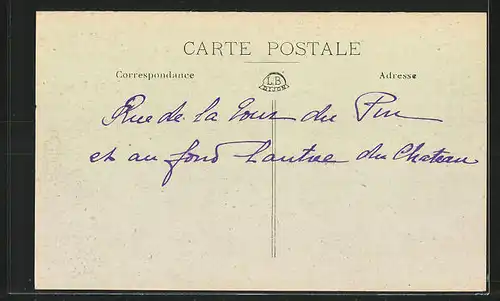 CARTE POSTALE
Correspondance
L.B
DIJON
Adresse
Rue de la Tour du Pin
et au fond l'autre du Chateau